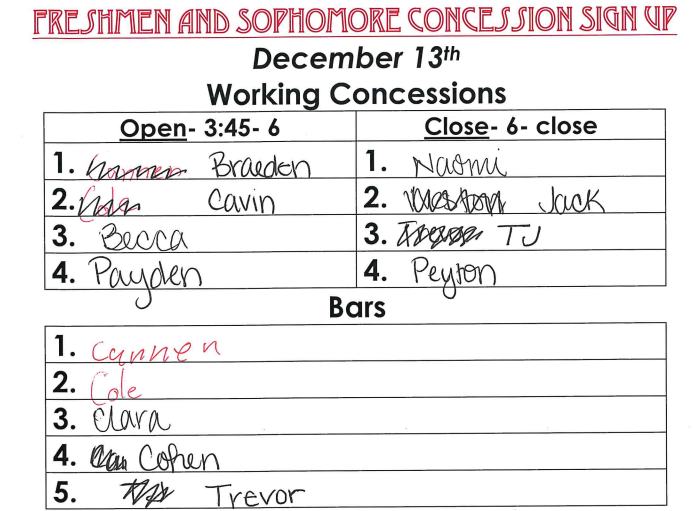 FRESHMEN AND SOPHOMORE CONCESSION SIGN UP
December 13th
Working Concessions
Open- 3:45- 6
Close- 6- close
1. Braeden
1. Naomi
2. Cole Cavin
2. Weston Jack
3. Becca
3. TJ
4. Payden
4. Peyton
Bars
1. Cannen
2. Cole
3. Clara
4. Cohen
5. Trevor